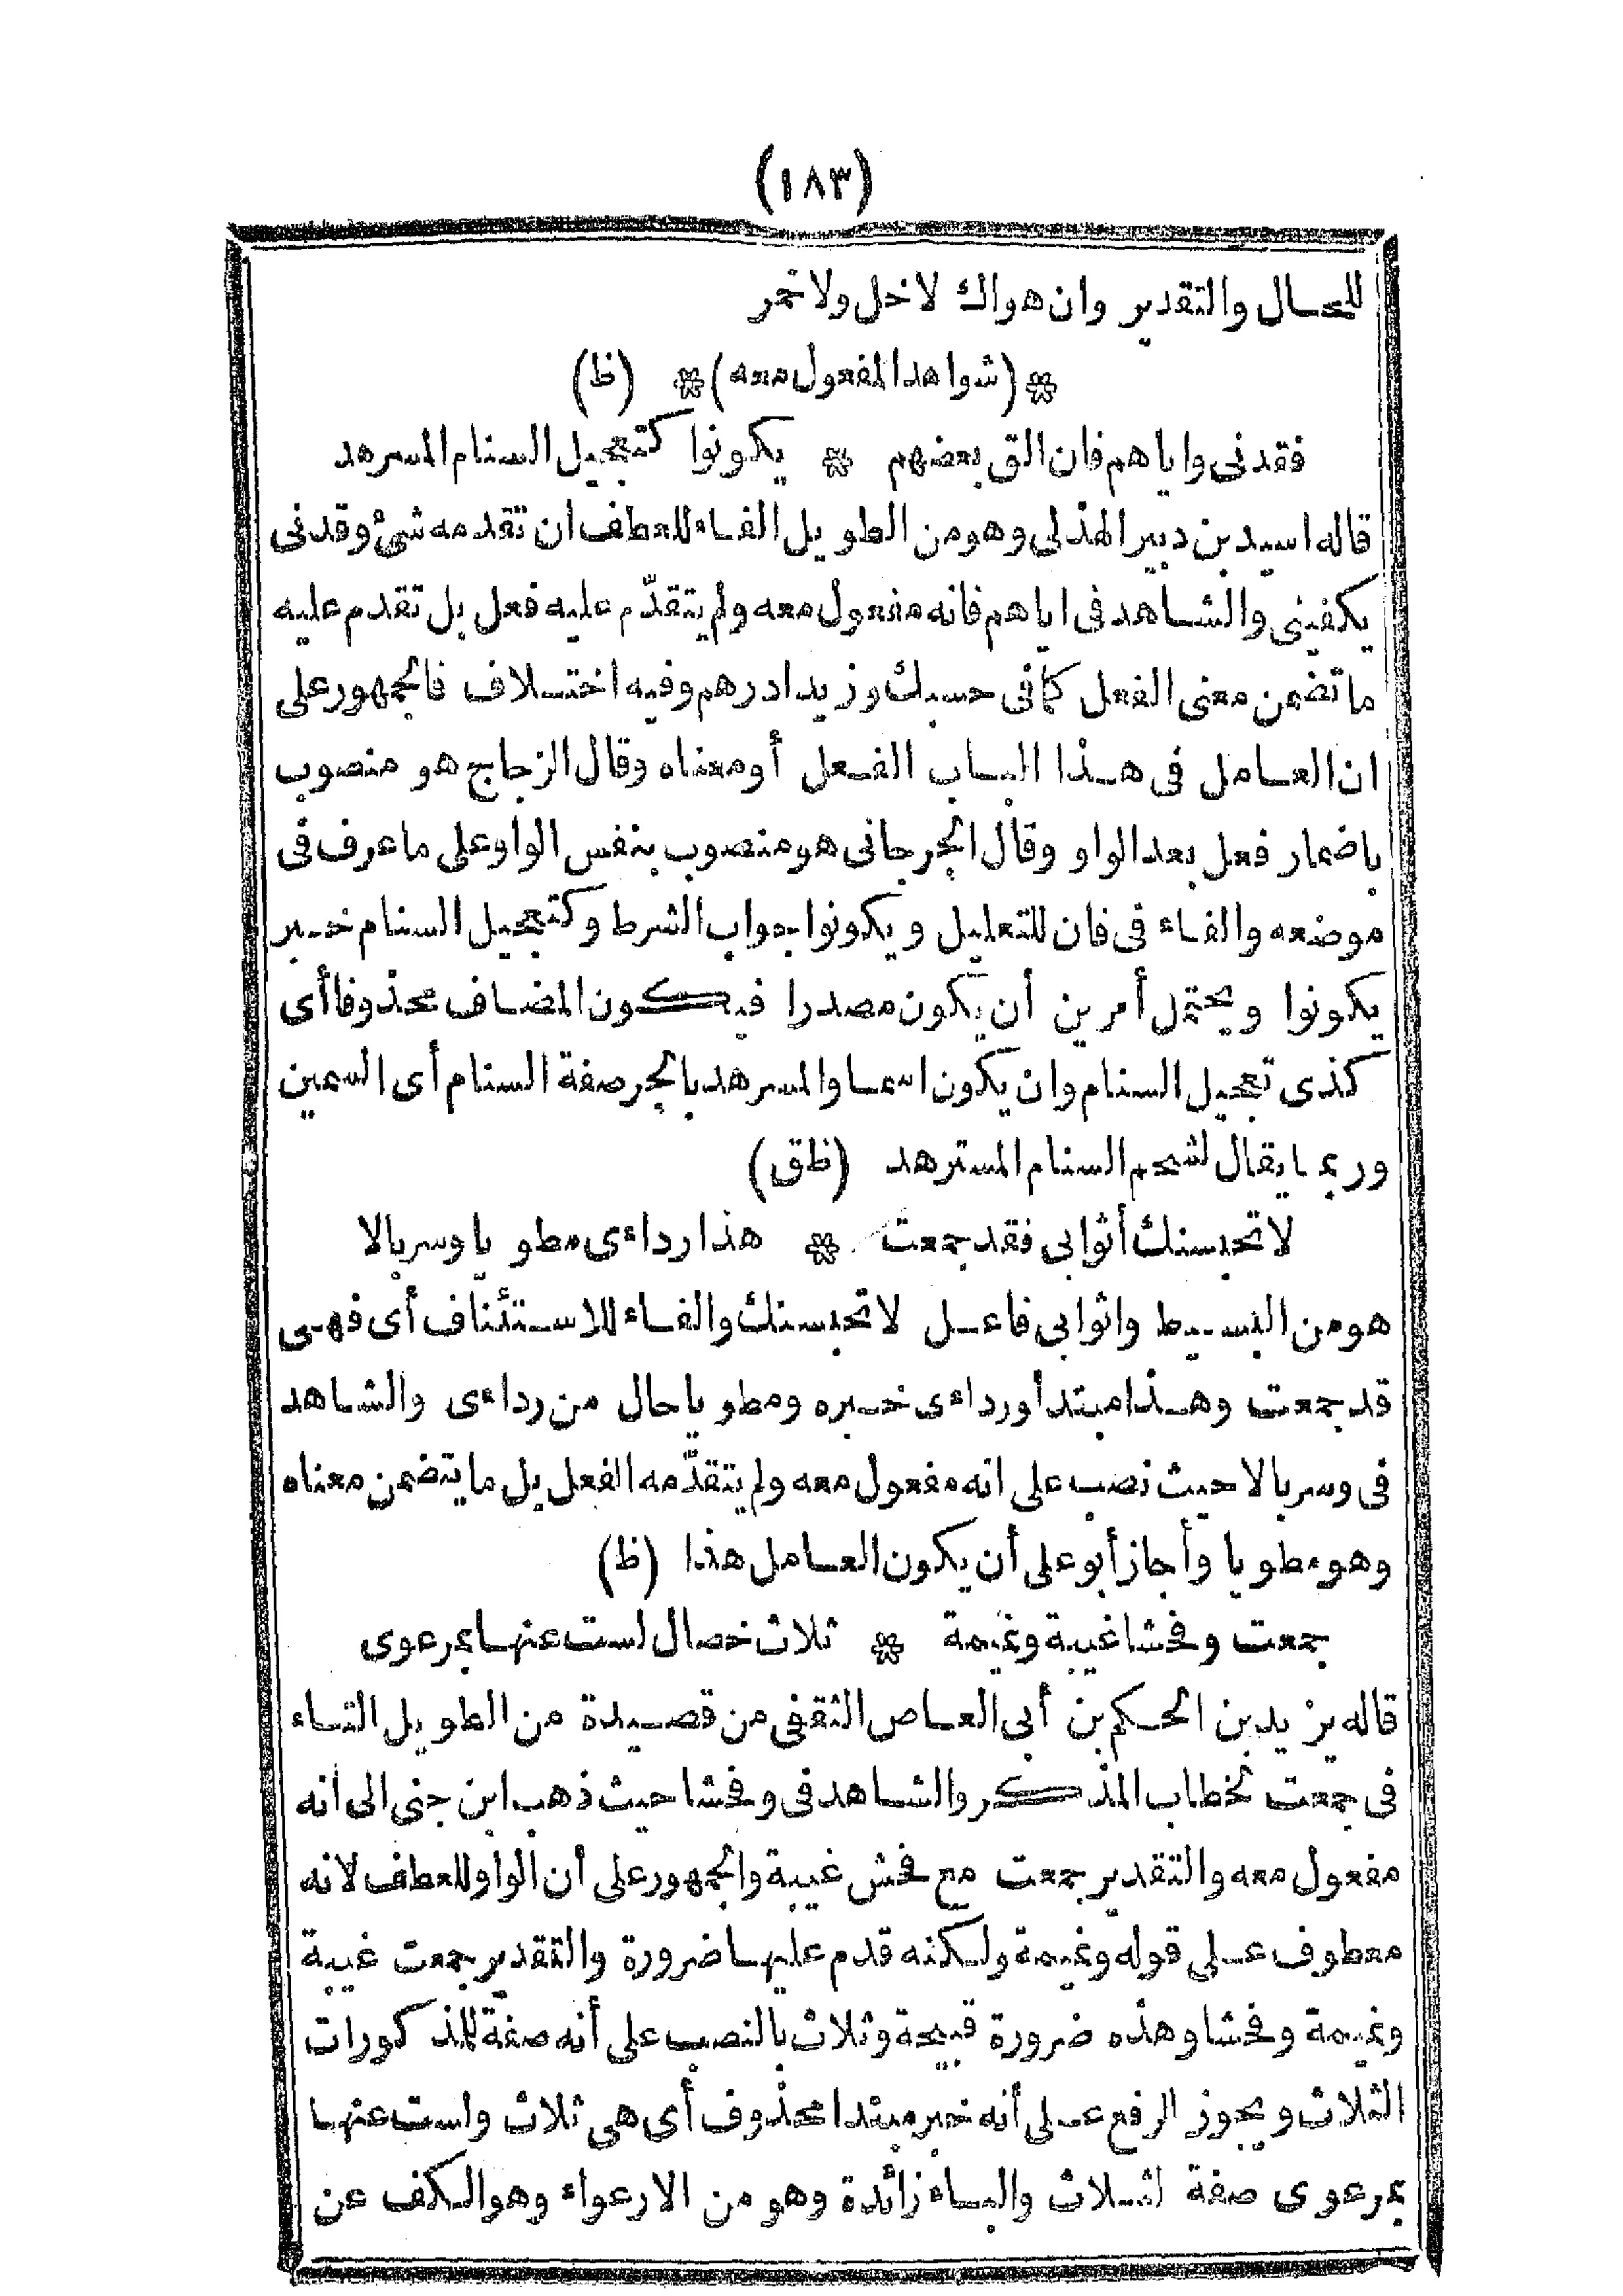 (١٨٣)
للحال والتقدير وان هواك لا خل ولا خمر
* (شواهد المفعول معه) * (ظ)
فقدنى واياهم فان الق بعضهم * يكونوا كتعجيل السنام المسرهد
قاله اسيد بن دبير الهذلى وهو من الطويل الفاء للعطف ان تقدمه شئ وقدنى
يكفينى والشاهد فى اياهم فانه مفعول معه ولم يتقدّم عليه فعل بل تقدم عليه
ما تضمن معنى الفعل كما فى حسبك وزيدا درهم وفيه اختلاف فالجمهور على
ان العامل فى هذا الباب الفعل أو معناه وقال الزجاج هو منصوب
باضمار فعل بعد الواو وقال الجرجانى هو منصوب بنفس الواو على ما عرف فى
موضعه والفاء فى فان للتعليل ويكونوا جواب الشرط وكتعجيل السنام خبر
يكونوا ويحتمل أمرين أن يكون مصدرا فيكون المضاف محذوفا أى
كذى تعجيل السنام وان يكون اسما والمسرهد بالجر صفة السنام أى السمين
وربما يقال لشحم السنام المسترهد (ظق)
لا تحبسنك أثوابى فقد جمعت * هذا رداءى مطويا وسربالا
هو من البسيط واثوابى فاعل لا تحبسنك والفاء للاستئناف أى فهى
قد جمعت وهذا مبتدأ ورداءى خبره ومطويا حال من رداءى والشاهد
فى وسربالا حيث نصب على انه مفعول معه ولم يتقدّمه الفعل بل ما يتضمن معناه
وهو مطويا وأجاز أبو على أن يكون العامل هذا (ظ)
جمعت وفحشا غيبة ونميمة * ثلاث خصال لست عنها بمرعوى
قاله يزيد بن الحكم بن أبى العاص الثقفى من قصيدة من الطويل التاء
فى جمعت لخطاب المذكر والشاهد فى وفحشا حيث ذهب ابن جنى الى انه
مفعول معه والتقدير جمعت مع فحش غيبة والجمهور على أن الواو للعطف لانه
معطوف على قوله ونميمة ولكنه قدم عليها ضرورة والتقدير جمعت غيبة
ونميمة وفحشا وهذه ضرورة قبيحة وثلاث بالنصب على أنه صفة للمذكورات
الثلاث ويجوز الرفع على أنه خبر مبتدا محذوف أى هى ثلاث ولست عنها
بمرعوى صفة لثلاث والباء زائدة وهو من الارعواء وهو الكف عن